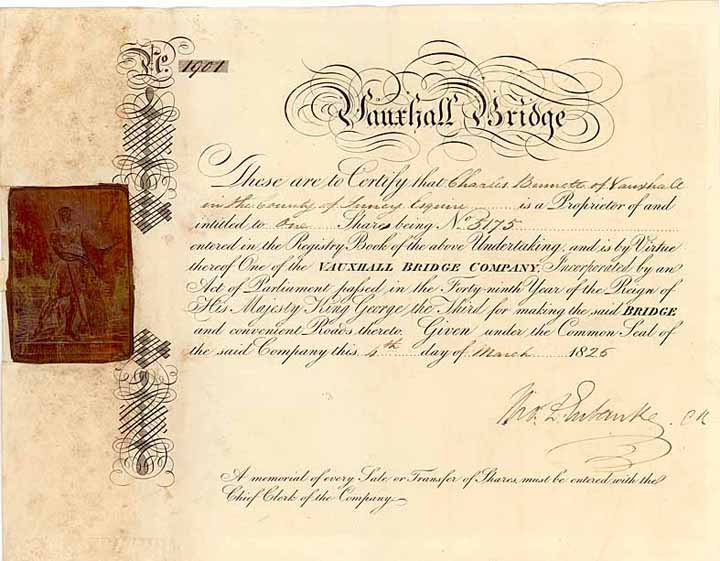 No. 1901
Vauxhall Bridge
These are to Certify that Charles Bennett of Vauxhall
in the County of Surrey Esquire is a Proprietor of and
intitled to One Shares being No. 3175
entered in the Registry Book of the above Undertaking, and is by Virtue
thereof One of the VAUXHALL BRIDGE COMPANY, Incorporated by an
Act of Parliament passed in the Forty-ninth Year of the Reign of
His Majesty King George the Third for making the said BRIDGE
and convenient Roads thereto. Given under the Common Seal of
the said Company this 4th day of March 1826
A memorial of every Sale or Transfer of Shares, must be entered with the
Chief Clerk of the Company.